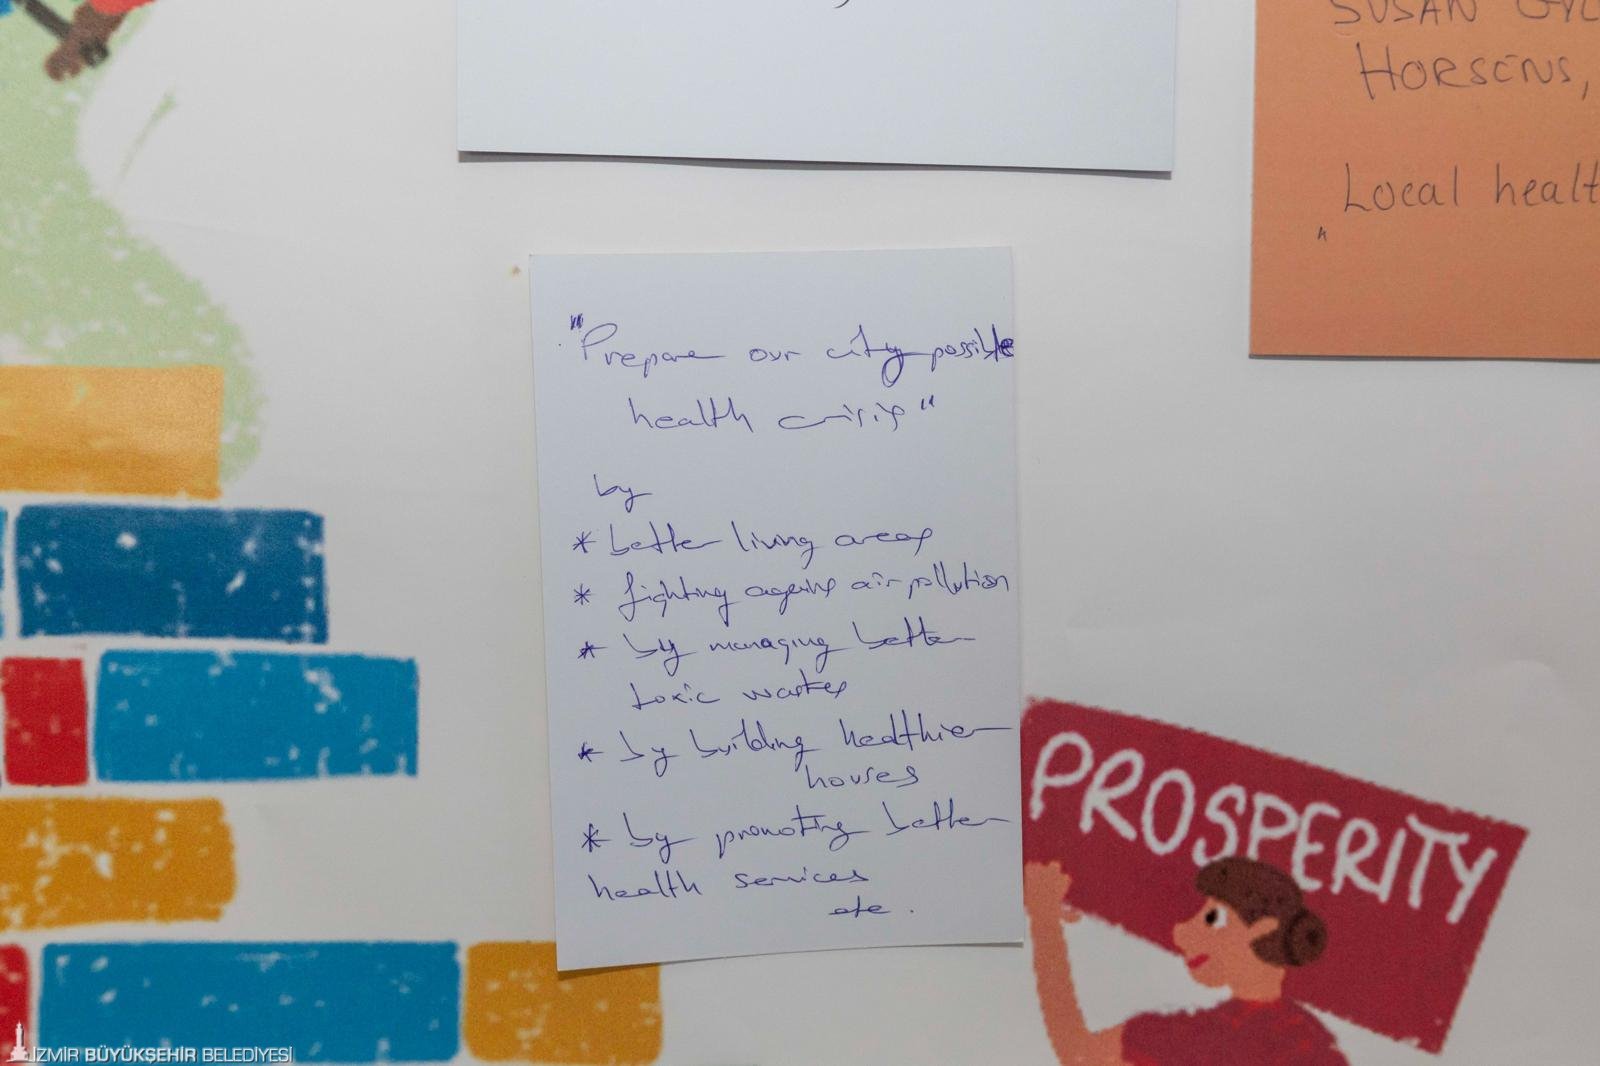 SUSAN
HORSENS,
Local healt
"Prepare our city possible
health crisis"
by
* better living areas
* fighting agains air pollution
* by managing better
toxic wastes
* by building healthier
houses
* by promoting better
health services
etc.
PROSPERITY
İZMİR BÜYÜKŞEHİR BELEDİYESİ